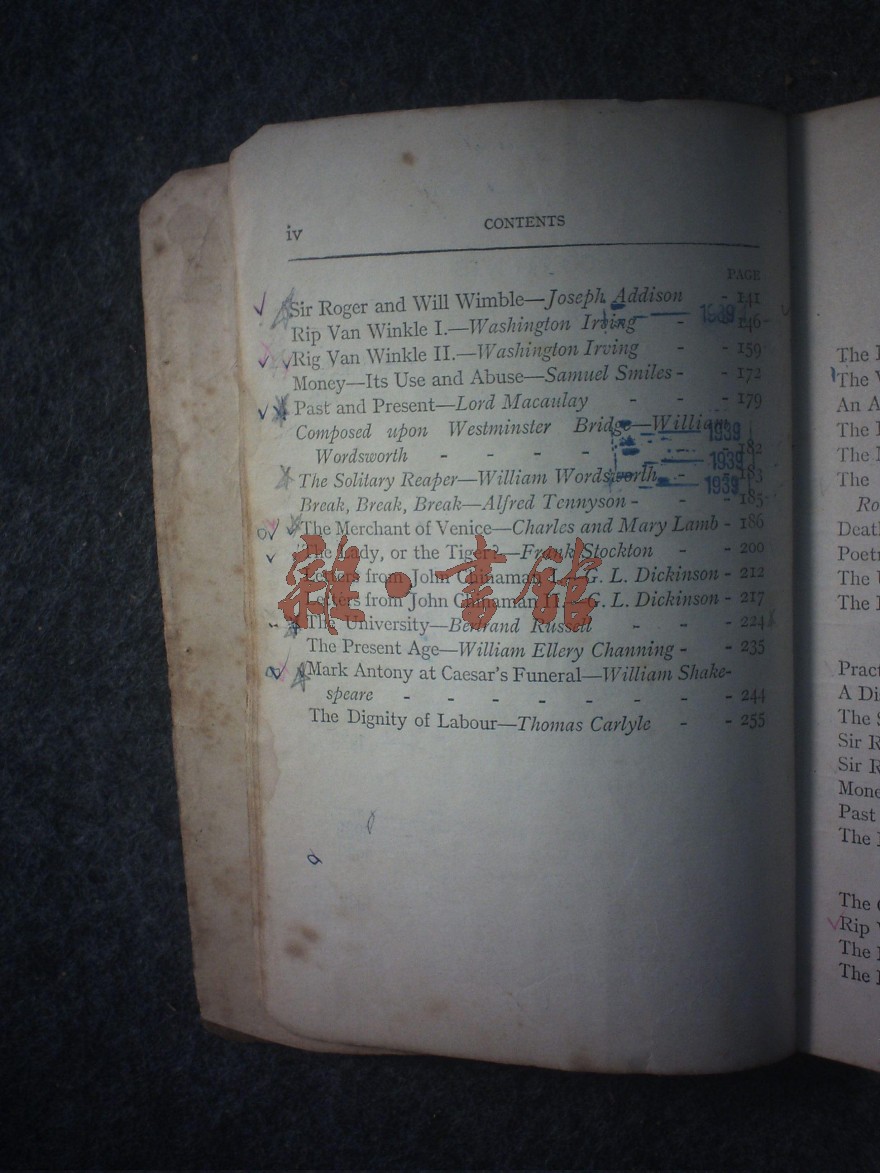 iv
CONTENTS
PAGE
Sir Roger and Will Wimble—Joseph Addison - 141
Rip Van Winkle I.—Washington Irving - - 146
Rig Van Winkle II.—Washington Irving - - 159
Money—Its Use and Abuse—Samuel Smiles - - 172
Past and Present—Lord Macaulay - - - 179
Composed upon Westminster Bridge—William
Wordsworth - - - - - - - 182
The Solitary Reaper—William Wordsworth - - 183
Break, Break, Break—Alfred Tennyson - - - 185
The Merchant of Venice—Charles and Mary Lamb - 186
The Lady, or the Tiger?—Frank Stockton - - 200
Letters from John Chinaman I.—G. L. Dickinson - 212
Letters from John Chinaman II.—G. L. Dickinson - 217
The University—Bertrand Russell - - - 224
The Present Age—William Ellery Channing - - 235
Mark Antony at Caesar's Funeral—William Shake-
speare - - - - - - - - 244
The Dignity of Labour—Thomas Carlyle - - 255
1939
1939
1939
1939
雜·書館
The
The
An A
The
The
The
Ro
Death
Poetr
The
The
Pract
A Di
The S
Sir R
Sir R
Mone
Past
The
The
Rip
The
The